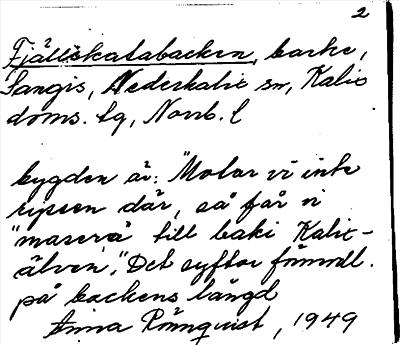 2
Fjällskatabacken, backe,
Sangis, Nederkalix sn, Kalix
doms. lg, Norrb. l
bygden är: "Motar vi inte
ripsen där, så får vi
"masera" till baki Kalix-
älven". Det syftar förmodl.
på backens längd
Anna Rönnquist, 1949